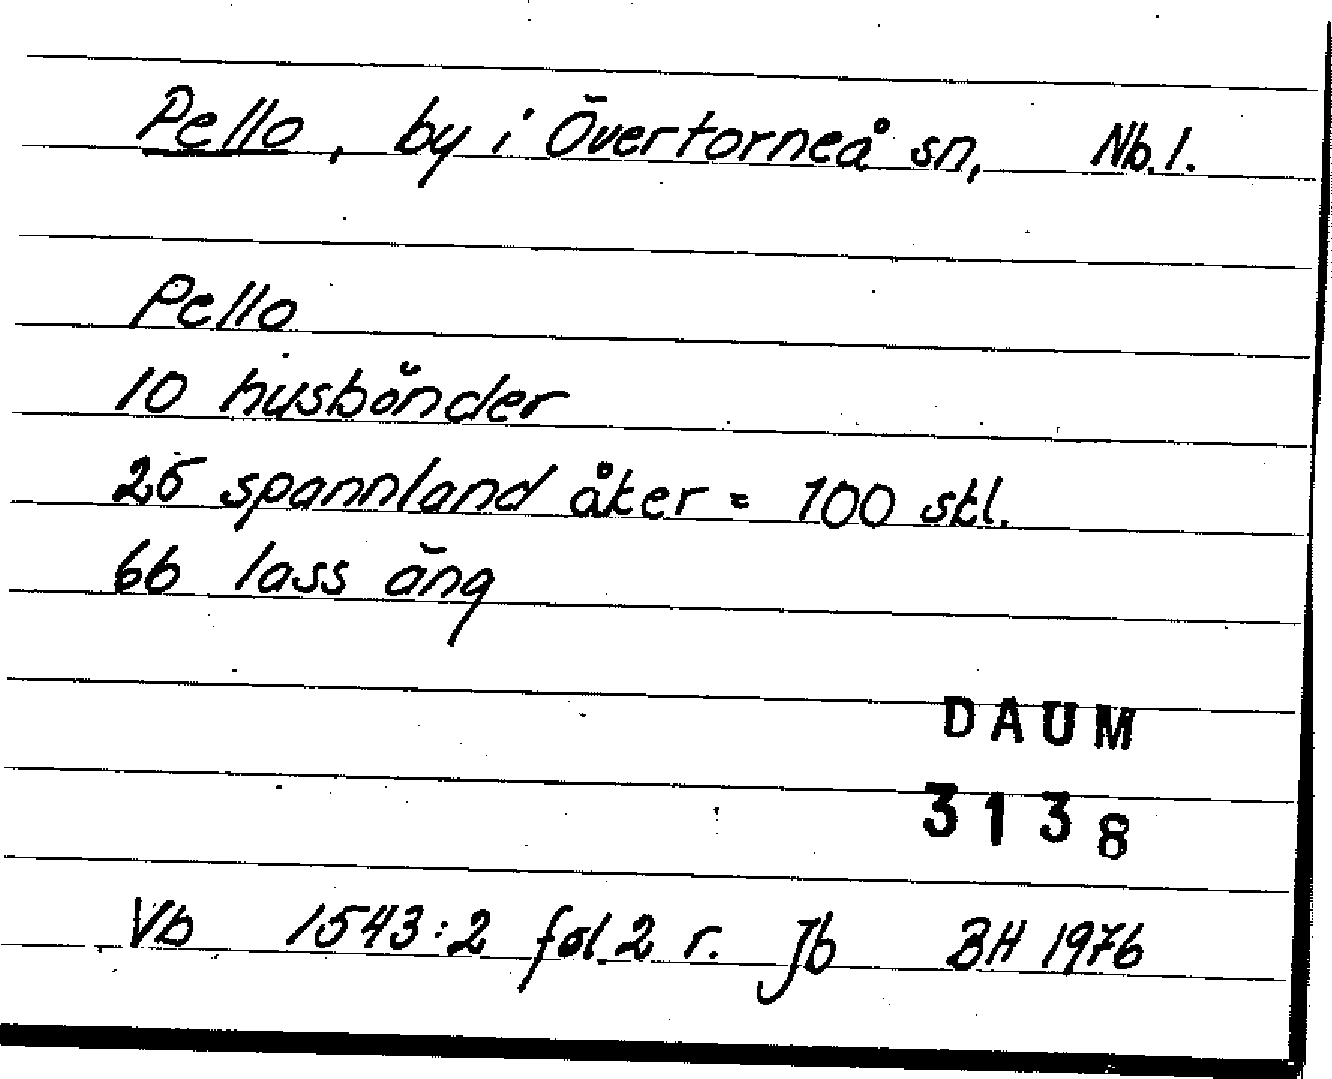 Pello, by i Övertorneå sn, Nb. l.
Pello
10 husbönder
25 spannland åker = 100 skl.
66 lass äng
DAUM
3138
Vb 1543:2 fol 2 r. Jb BH 1976